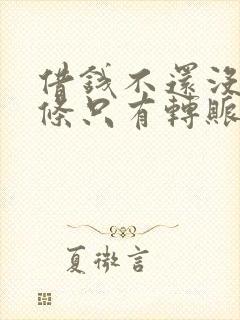 借錢不還沒
條只有轉賬
夏微言